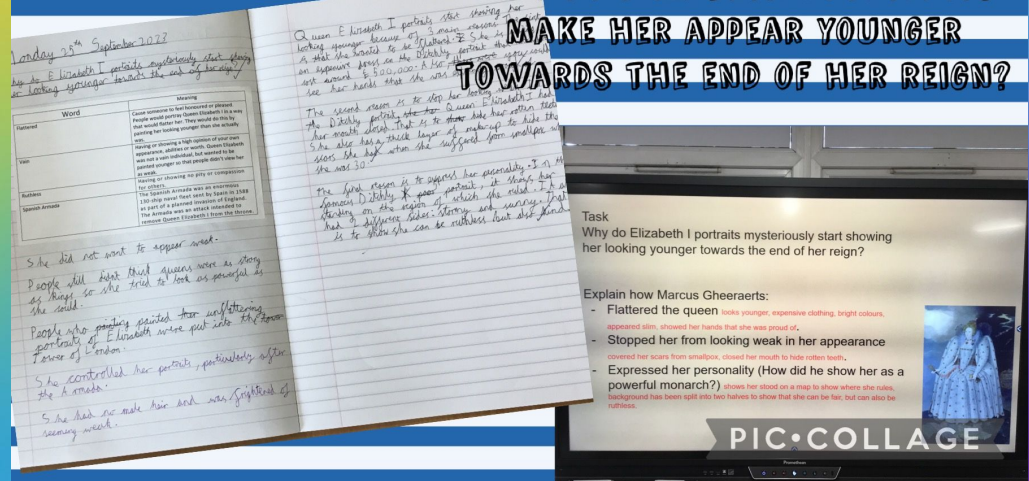 MAKE HER APPEAR YOUNGER
TOWARDS THE END OF HER REIGN?
Monday 25th September 2023
Why do Elizabeth I portraits mysteriously start showing
her looking younger towards the end of her reign?
Word
Meaning
Flattered
Cause someone to feel honoured or pleased.
People would portray Queen Elizabeth I in a way
that would flatter her. They would do this by
painting her looking younger than she actually
was.
Vain
Having or showing a high opinion of your own
appearance, abilities or worth. Queen Elizabeth
was not a vain individual, but wanted to be
painted younger so that people didn't view her
as weak.
Ruthless
Having or showing no pity or compassion
for others.
Spanish Armada
The Spanish Armada was an enormous
130-ship naval fleet sent by Spain in 1588
as part of a planned invasion of England.
The Armada was an attack intended to
remove Queen Elizabeth I from the throne.
She did not want to appear weak.
People still didnt think queens were as strong
as kings so she tried to look as powerful as
she could.
People who painted unflattering
portraits of Elizabeth were put into the
Tower of London.
She controlled her portraits, particularly after
the Armada.
She had no male heir and was frightened of
seeming weak.
Queen Elizabeth I portraits start showing her
looking younger because of 3 main reasons.
is that she wanted to be flattered. She is
an expensive dress in the Ditchley portrait
around £500,000. Also
see her hands that she was
The second reason is to stop her looking
the Ditchley portrait, Queen Elizabeth I had
her mouth closed. That is to hide her rotten teeth
She also has a thick layer of make-up to hide the
scars she had when she suffered from smallpox
she was 30.
The final reason is to express her personality. In the
famous Ditchley portrait, it shows her
standing on the region of which she ruled. It
had 2 different sides: stormy and sunny. That
is to show she can be ruthless but also
Task
Why do Elizabeth I portraits mysteriously start showing
her looking younger towards the end of her reign?
Explain how Marcus Gheeraerts:
- Flattered the queen looks younger, expensive clothing, bright colours,
appeared slim, showed her hands that she was proud of.
- Stopped her from looking weak in her appearance
covered her scars from smallpox, closed her mouth to hide rotten teeth.
- Expressed her personality (How did he show her as a
powerful monarch?) shows her stood on a map to show where she rules,
background has been split into two halves to show that she can be fair, but can also be
ruthless.
PIC•COLLAGE
Promethean